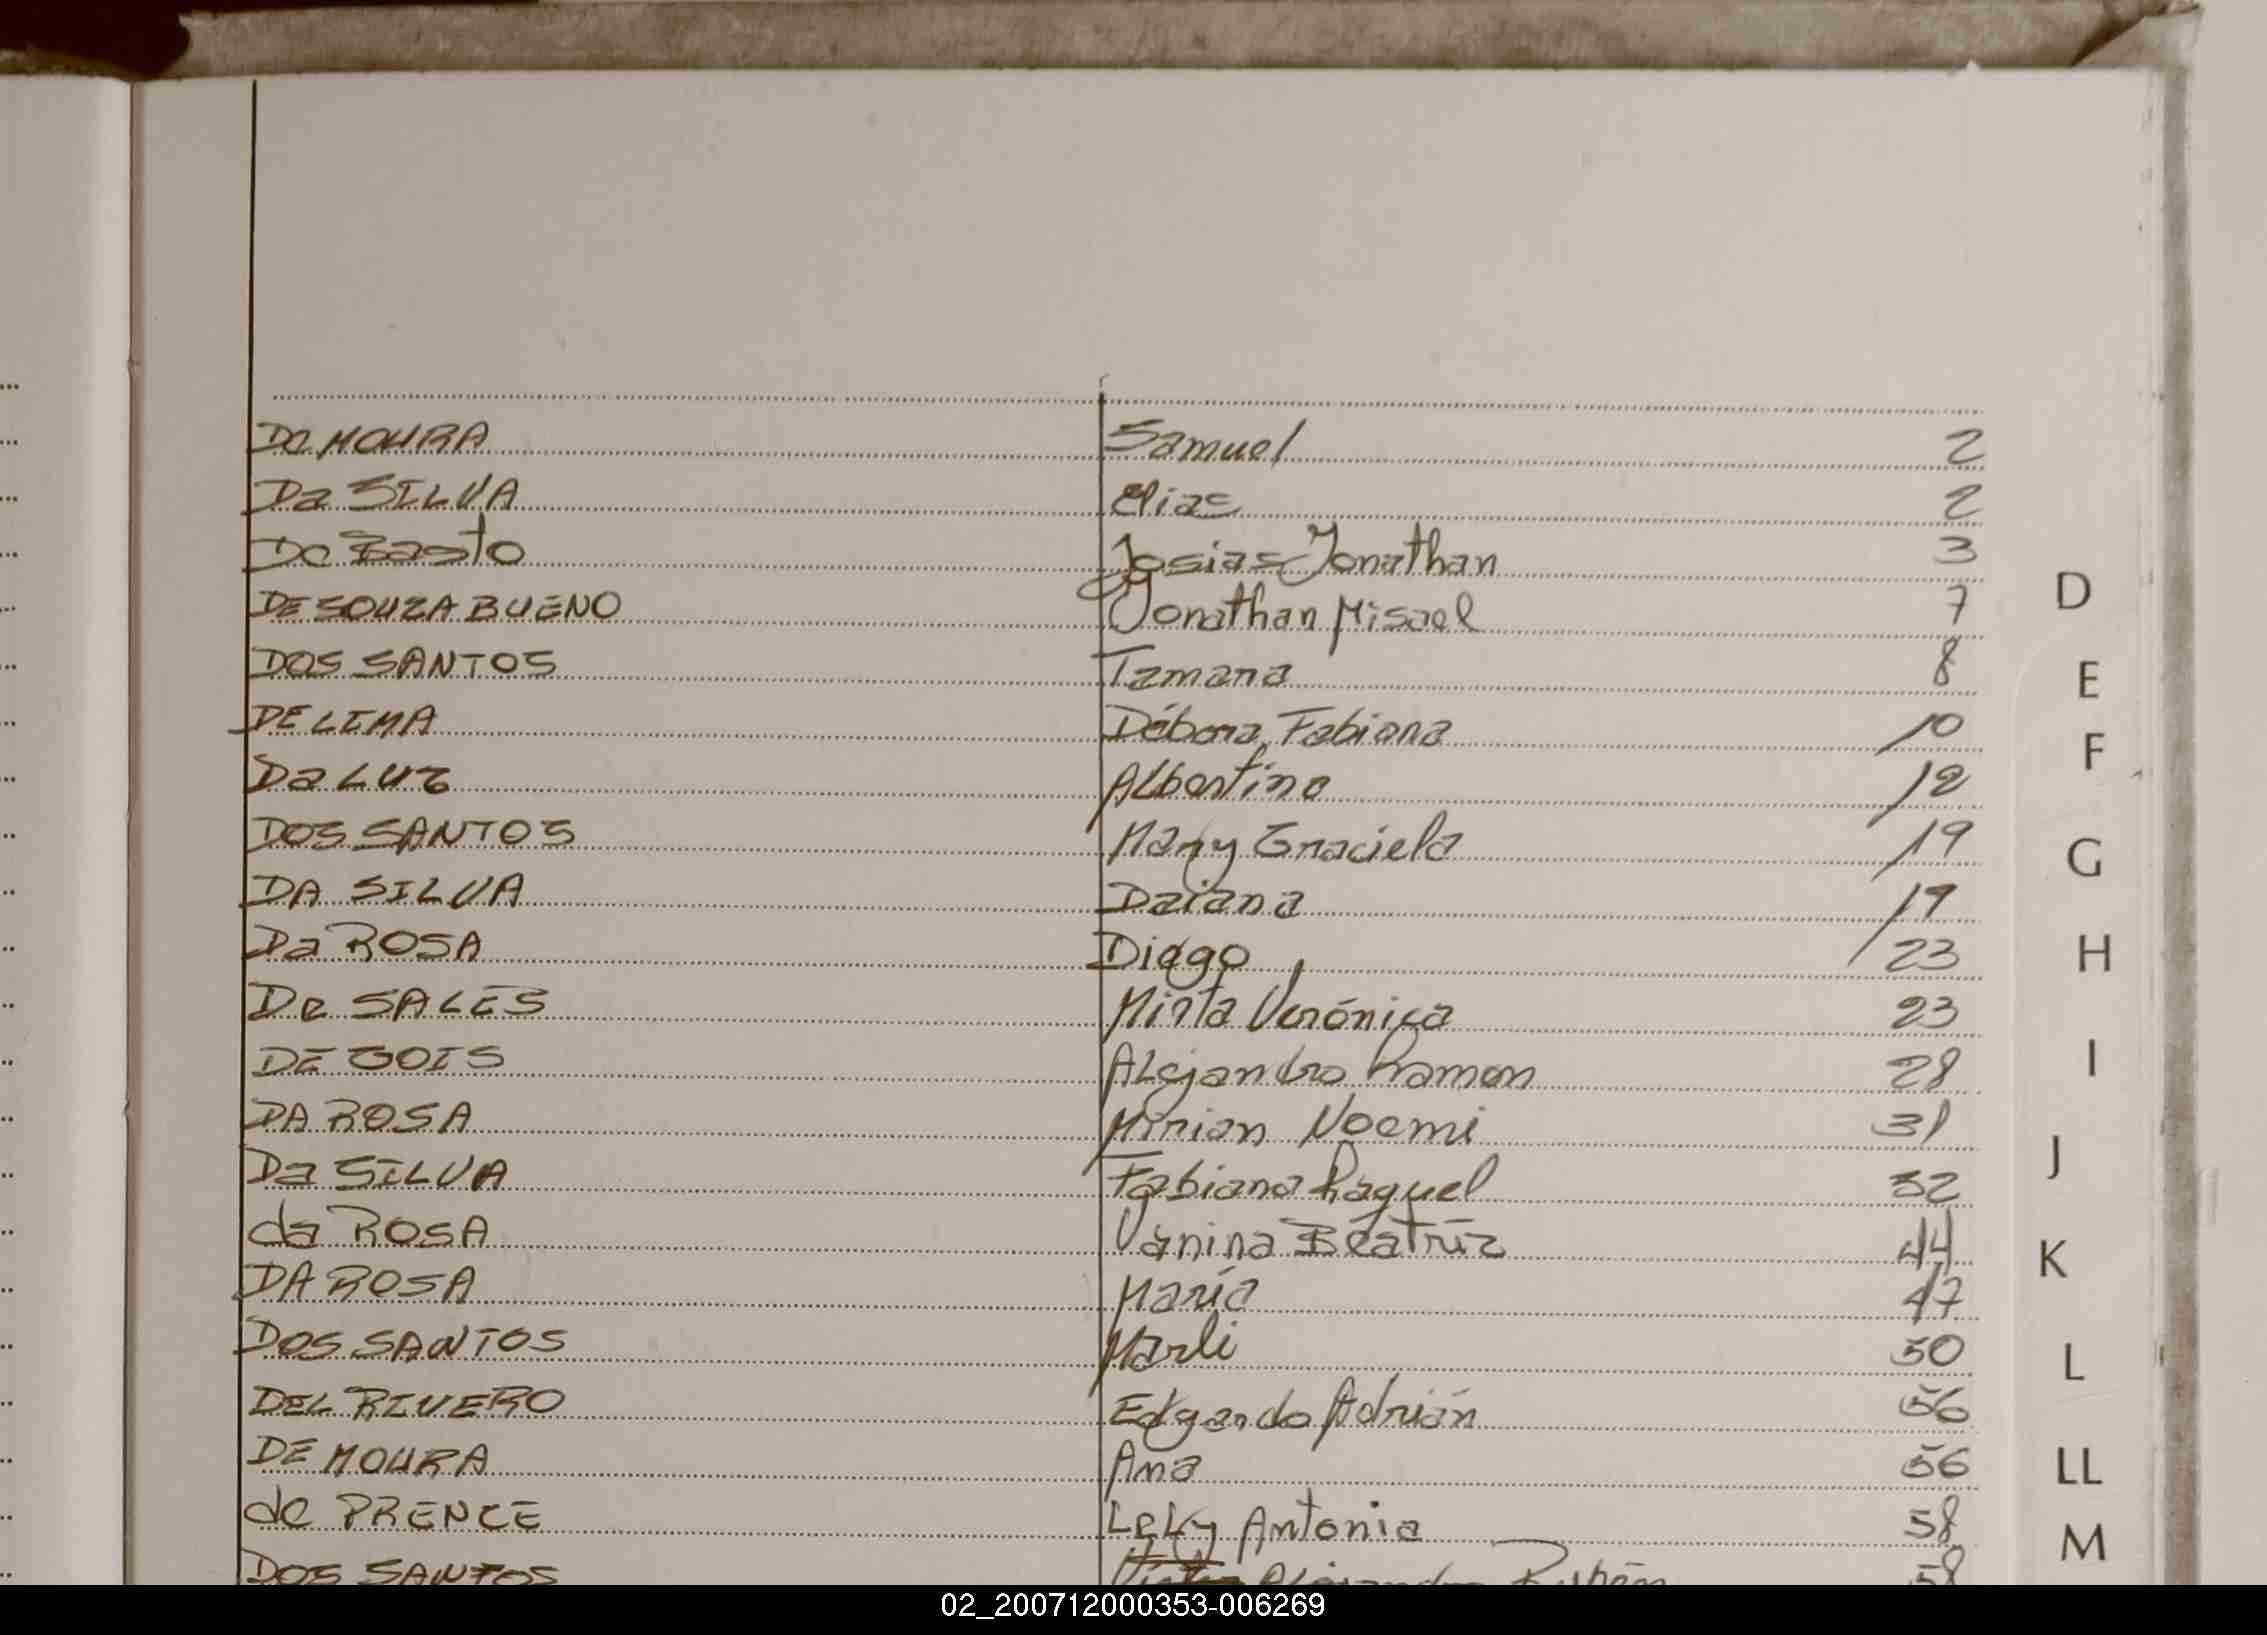 De MOURA Samuel 2
Da SILVA Elias 2
De Basto Josias Jonathan 3
DE SOUZA BUENO Jonathan Misael 7
DOS SANTOS Tamara 8
DE LIMA Débora Fabiana 10
Da LUZ Albertino 12
DOS SANTOS Mary Graciela 19
DA SILVA Daiana 19
Da ROSA Diego 23
De SALES Mirta Verónica 23
DE GOIS Alejandro Ramon 28
DA ROSA Mirian Noemi 31
Da SILVA Fabiana Raquel 32
da ROSA Vanina Beatriz 44
DA ROSA María 47
DOS SANTOS Marli 50
DEL RIVERO Edgardo Adrián 56
DE MOURA Ana 56
de PRENCE Leky Antonia 58
DOS SANTOS Alejandro Rubén 58
D
E
F
G
H
I
J
K
L
LL
M
02_200712000353-006269